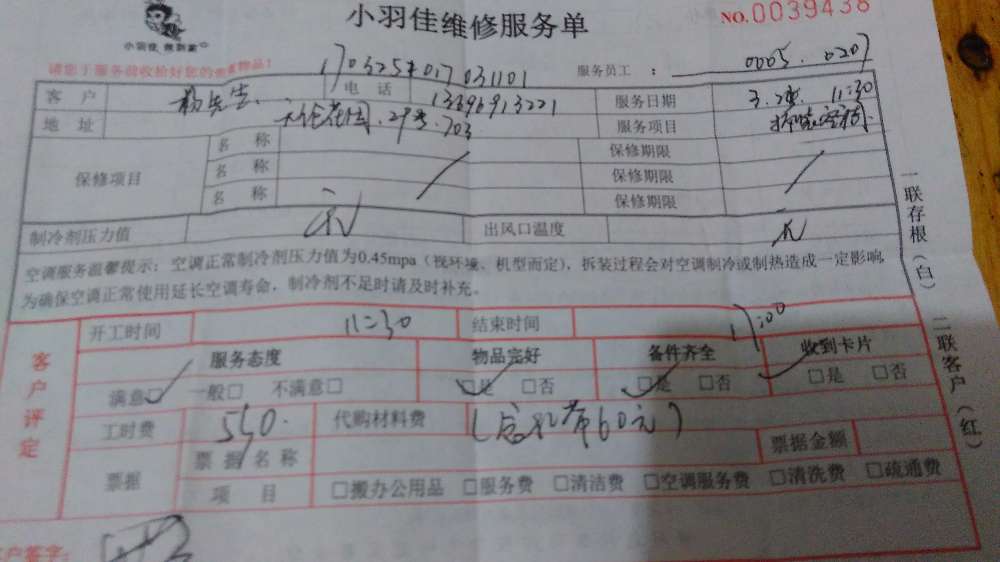 小羽佳维修服务单
NO.0039438
小羽佳 做到家
请您于服务前收拾好您的贵重物品!
服务员工 : 0005.0207
客户 杨先生 电话 13696913221 服务日期 11:30
地址 29号.703 服务项目
保修项目 名称 保修期限
名称 保修期限
名称 保修期限
制冷剂压力值 出风口温度
空调服务温馨提示:空调正常制冷剂压力值为0.45mpa(视环境、机型而定),拆装过程会对空调制冷或制热造成一定影响,
为确保空调正常使用延长空调寿命,制冷剂不足时请及时补充。
客户评定
开工时间 11:30 结束时间 17:00
服务态度 物品完好 备件齐全 收到卡片
满意□ 一般□ 不满意□ □是 □否 □是 □否 □是 □否
工时费 550. 代购材料费 60元)
票据 票据名称 票据金额
项目 □搬办公用品 □服务费 □清洁费 □空调服务费 □清洗费 □疏通费
客户签字:
一联存根(白) 二联客户(红)